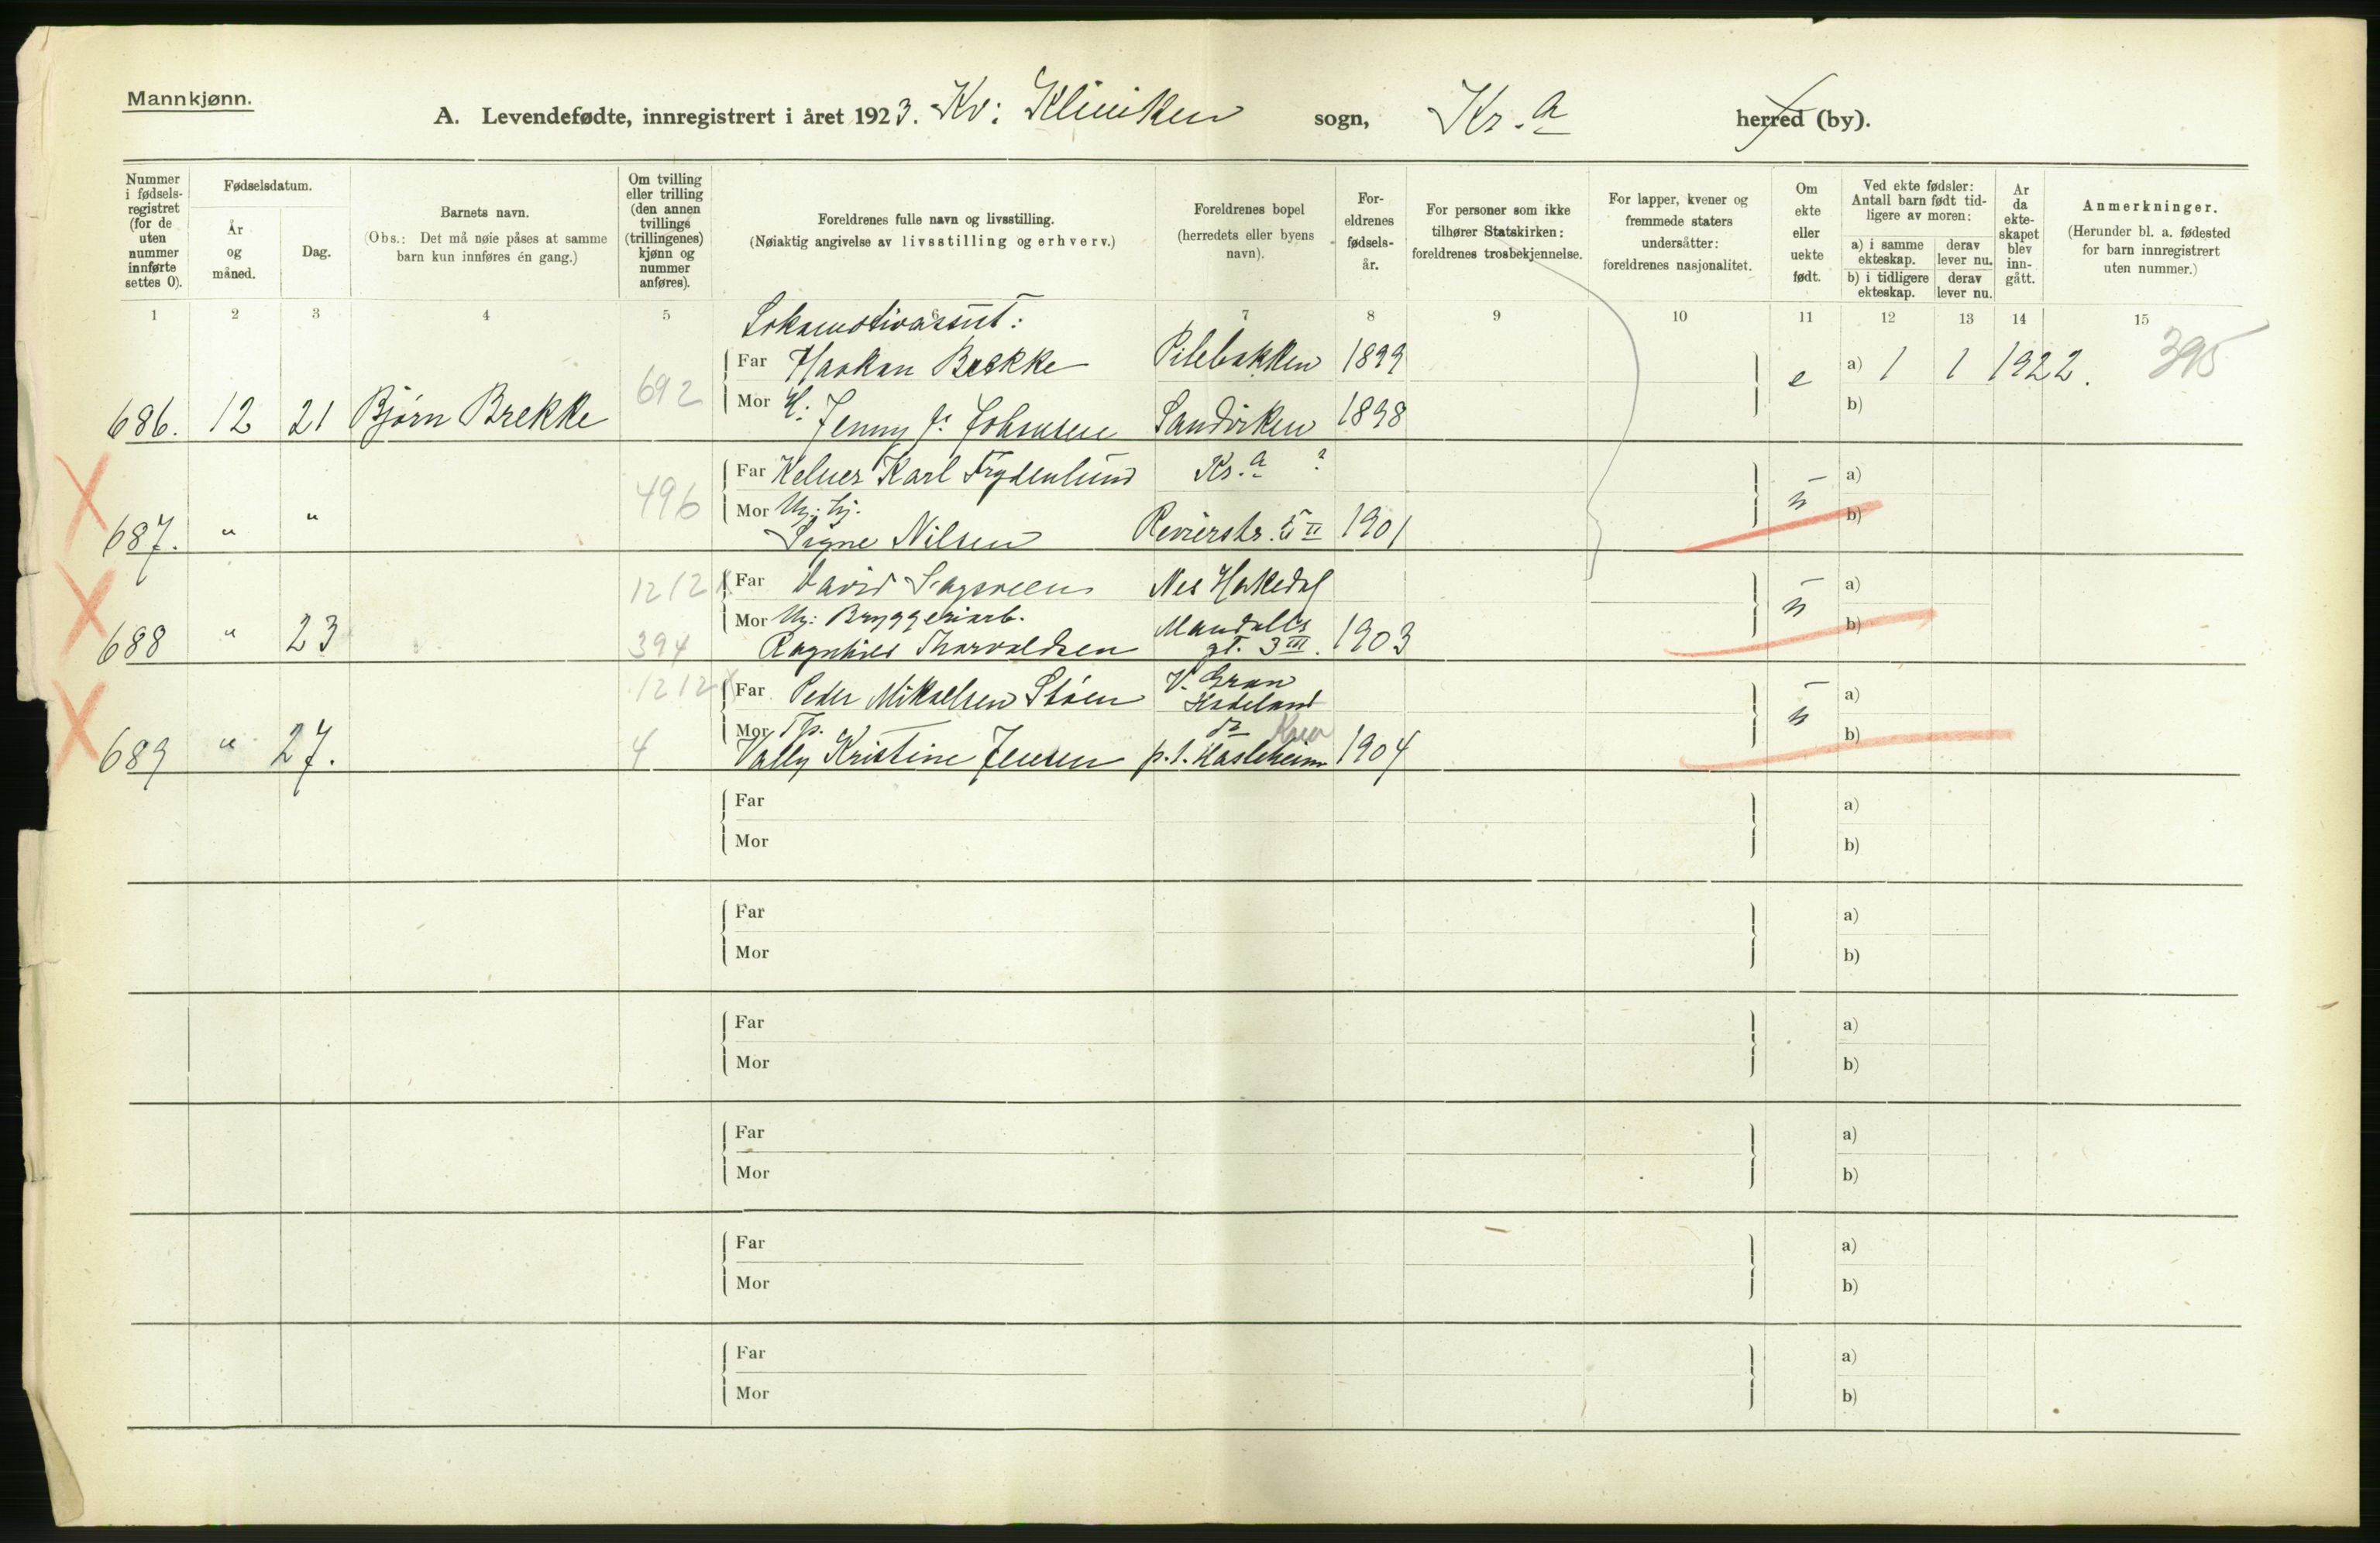 Mannkjønn.
A. Levendefødte, innregistrert i året 1923. Kv: Kliniken sogn, Kr.a herred (by).
Nummer i fødselsregistret (for de uten nummer innførte settes 0).
Fødselsdatum.
År og måned.
Dag.
Barnets navn.
(Obs.: Det må nøie påses at samme barn kun innføres én gang.)
Om tvilling eller trilling (den annen tvillings (trillingenes) kjønn og nummer anføres).
Foreldrenes fulle navn og livsstilling.
(Nøiaktig angivelse av livsstilling og erhverv.)
Foreldrenes bopel (herredets eller byens navn).
Foreldrenes fødselsår.
For personer som ikke tilhører Statskirken: foreldrenes trosbekjennelse.
For lapper, kvener og fremmede staters undersåtter: foreldrenes nasjonalitet.
Om ekte eller uekte født.
Ved ekte fødsler: Antall barn født tidligere av moren:
a) i samme ekteskap.
derav lever nu.
b) i tidligere ekteskap.
derav lever nu.
År da ekteskapet blev inngått.
Anmerkninger.
(Herunder bl. a. fødested for barn innregistrert uten nummer.)
1 2 3 4 5 6 7 8 9 10 11 12 13 14 15
Lokomotivassist:
Far Haakon Brekke Pilebakken 1899
686. 12 21 Bjørn Brekke 692 e a) 1 1 1922. 395
Mor H: Jenny J. Johnsen Sandviken 1898
b)
Far Kelner Karl Frydenlund Kr.a ?
687. " " 496 ū a)
Mor Ug: hj.
Signe Nilsen Revierstr. 5 II 1901
b)
1212 X Far David Sagsveen Nes Hakedal
688 " 23 394 ū a)
Mor Ug: Bryggeriarb.
Ragnhild Thorvaldsen Mandalls gt. 3 III. 1903
b)
1212 X Far Peder Mikaelsen Støen V. Gran Hadeland
689 " 27. 4 ū a)
Mor Tjp.
Vally Kristine Jensen p.t. Hasleheim 1904
b)
Far a)
Mor b)
Far a)
Mor b)
Far a)
Mor b)
Far a)
Mor b)
Far a)
Mor b)
Far a)
Mor b)